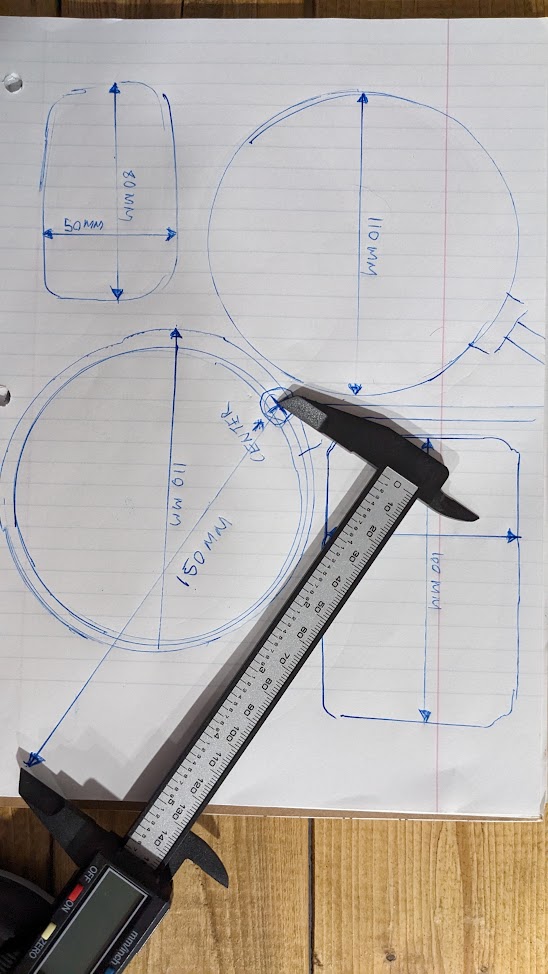 80 MM
50 MM
110 MM
CENTER
110 MM
150 MM
100 MM
0 10 20 30 40 50 60 70 80 90 100 110 120 130 140
2 3 4 5
OFF ON
ZERO
mm/inch